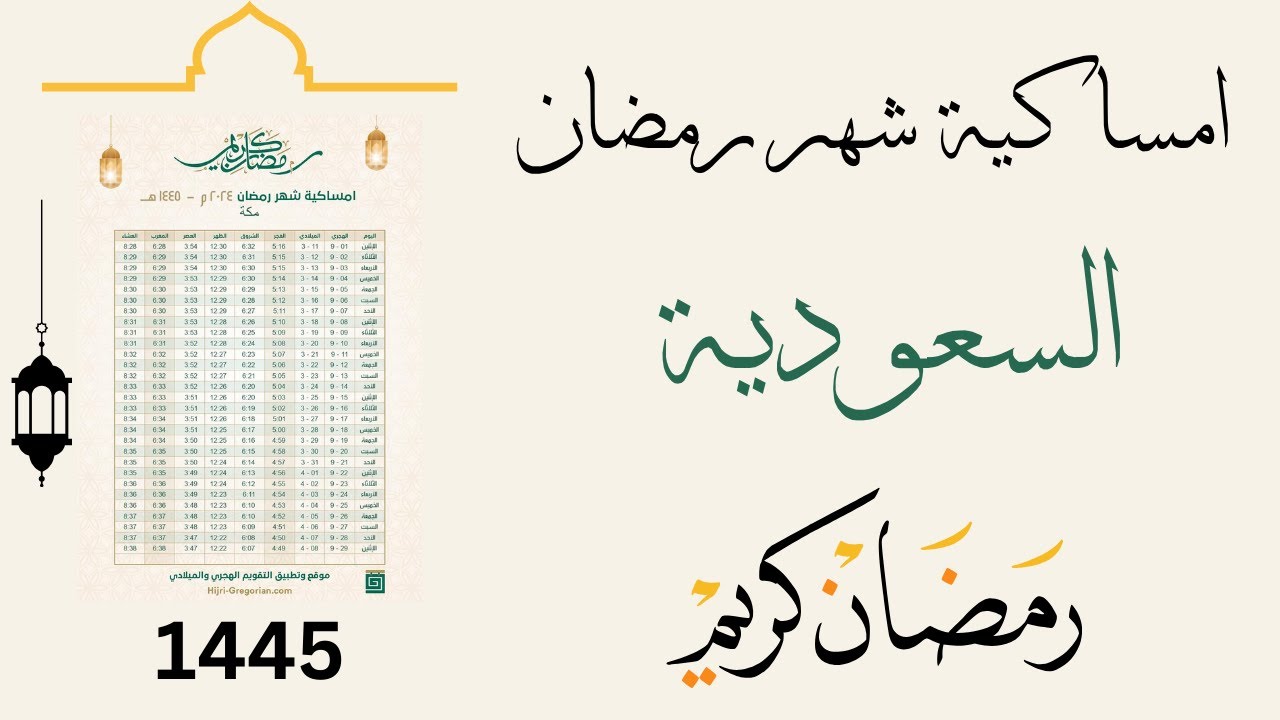 امساكية شهر رمضان
السعودية
رَمَضَانْ كريمْ
رمضان كريم
امساكية شهر رمضان ٢٠٢٤ م - ١٤٤٥ هـ
مكة
اليوم الهجري الميلادي الفجر الشروق الظهر العصر المغرب العشاء
الإثنين 9 - 01 3 - 11 5:16 6:32 12:30 3:54 6:28 8:28
الثلاثاء 9 - 02 3 - 12 5:15 6:31 12:30 3:54 6:29 8:29
الأربعاء 9 - 03 3 - 13 5:15 6:30 12:30 3:54 6:29 8:29
الخميس 9 - 04 3 - 14 5:14 6:30 12:29 3:53 6:29 8:29
الجمعة 9 - 05 3 - 15 5:13 6:29 12:29 3:53 6:30 8:30
السبت 9 - 06 3 - 16 5:12 6:28 12:29 3:53 6:30 8:30
الأحد 9 - 07 3 - 17 5:11 6:27 12:29 3:53 6:30 8:30
الإثنين 9 - 08 3 - 18 5:10 6:26 12:28 3:53 6:31 8:31
الثلاثاء 9 - 09 3 - 19 5:09 6:25 12:28 3:53 6:31 8:31
الأربعاء 9 - 10 3 - 20 5:08 6:24 12:28 3:52 6:31 8:31
الخميس 9 - 11 3 - 21 5:07 6:23 12:27 3:52 6:32 8:32
الجمعة 9 - 12 3 - 22 5:06 6:22 12:27 3:52 6:32 8:32
السبت 9 - 13 3 - 23 5:05 6:21 12:27 3:52 6:32 8:32
الأحد 9 - 14 3 - 24 5:04 6:20 12:26 3:52 6:33 8:33
الإثنين 9 - 15 3 - 25 5:03 6:19 12:26 3:51 6:33 8:33
الثلاثاء 9 - 16 3 - 26 5:02 6:19 12:26 3:51 6:33 8:33
الأربعاء 9 - 17 3 - 27 5:01 6:18 12:26 3:51 6:34 8:34
الخميس 9 - 18 3 - 28 5:00 6:17 12:25 3:51 6:34 8:34
الجمعة 9 - 19 3 - 29 4:59 6:16 12:25 3:50 6:34 8:34
السبت 9 - 20 3 - 30 4:58 6:15 12:25 3:50 6:35 8:35
الأحد 9 - 21 3 - 31 4:57 6:14 12:24 3:50 6:35 8:35
الإثنين 9 - 22 4 - 01 4:56 6:13 12:24 3:49 6:35 8:35
الثلاثاء 9 - 23 4 - 02 4:55 6:12 12:24 3:49 6:36 8:36
الأربعاء 9 - 24 4 - 03 4:54 6:11 12:23 3:49 6:36 8:36
الخميس 9 - 25 4 - 04 4:53 6:10 12:23 3:48 6:36 8:36
الجمعة 9 - 26 4 - 05 4:52 6:10 12:23 3:48 6:37 8:37
السبت 9 - 27 4 - 06 4:51 6:09 12:23 3:48 6:37 8:37
الأحد 9 - 28 4 - 07 4:50 6:08 12:23 3:47 6:37 8:37
الإثنين 9 - 29 4 - 08 4:49 6:07 12:22 3:47 6:38 8:38
موقع وتطبيق التقويم الهجري والميلادي
Hijri-Gregorian.com
1445